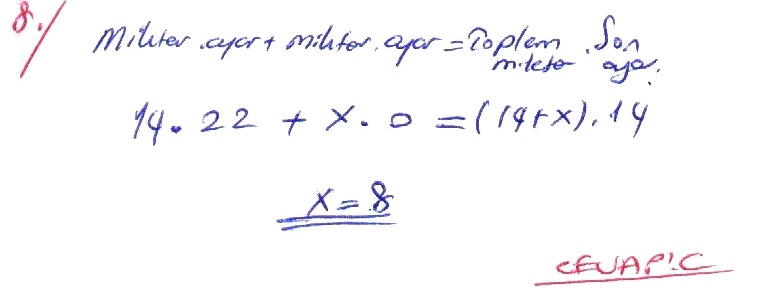 8./ Mikter.ayar + mikter.ayar = Toplam mikter . Son ayar.
14.22 + x.0 = (14+x).14
x=8
CEVAP:C